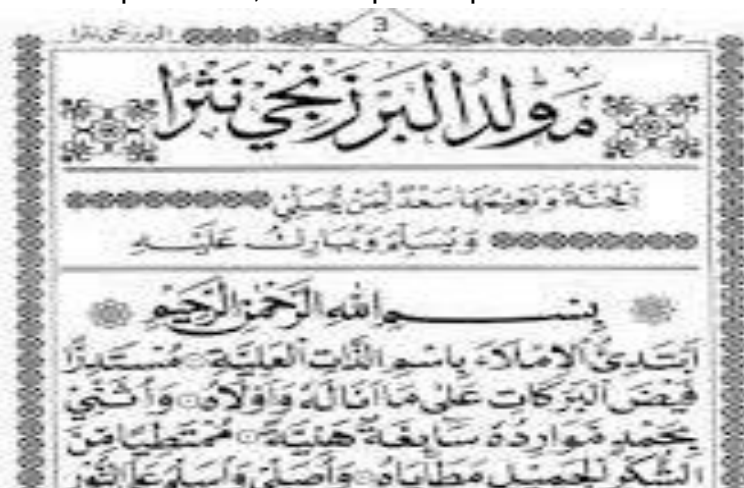 3
مولد البرزنجي نثرا
مَوْلِدُ الْبَرْزَنْجِيِّ نَثْرًا
اَلْجَنَّةُ وَنَعِيْمُهَا سَعْدٌ لِمَنْ يُصَلِّيْ
وَيُسَلِّمُ وَيُبَارِكُ عَلَيْهِ
بِسْمِ اللهِ الرَّحْمٰنِ الرَّحِيْمِ
اَبْتَدِئُ الْاِمْلَاءَ بِاسْمِ الذَّاتِ الْعَلِيَّةِ مُسْتَدِرًّا
فَيْضَ الْبَرَكَاتِ عَلٰى مَا اَنَالَهُ وَاَوْلَاهُ وَاُثَنِّيْ
بِحَمْدٍ مَوَارِدُهُ سَائِغَةٌ هَنِيَّةٌ مُمْتَطِيًا مِنَ
الشُّكْرِ الْجَمِيْلِ مَطَايَاهُ وَاُصَلِّيْ وَاُسَلِّمُ عَلَى النُّوْرِ